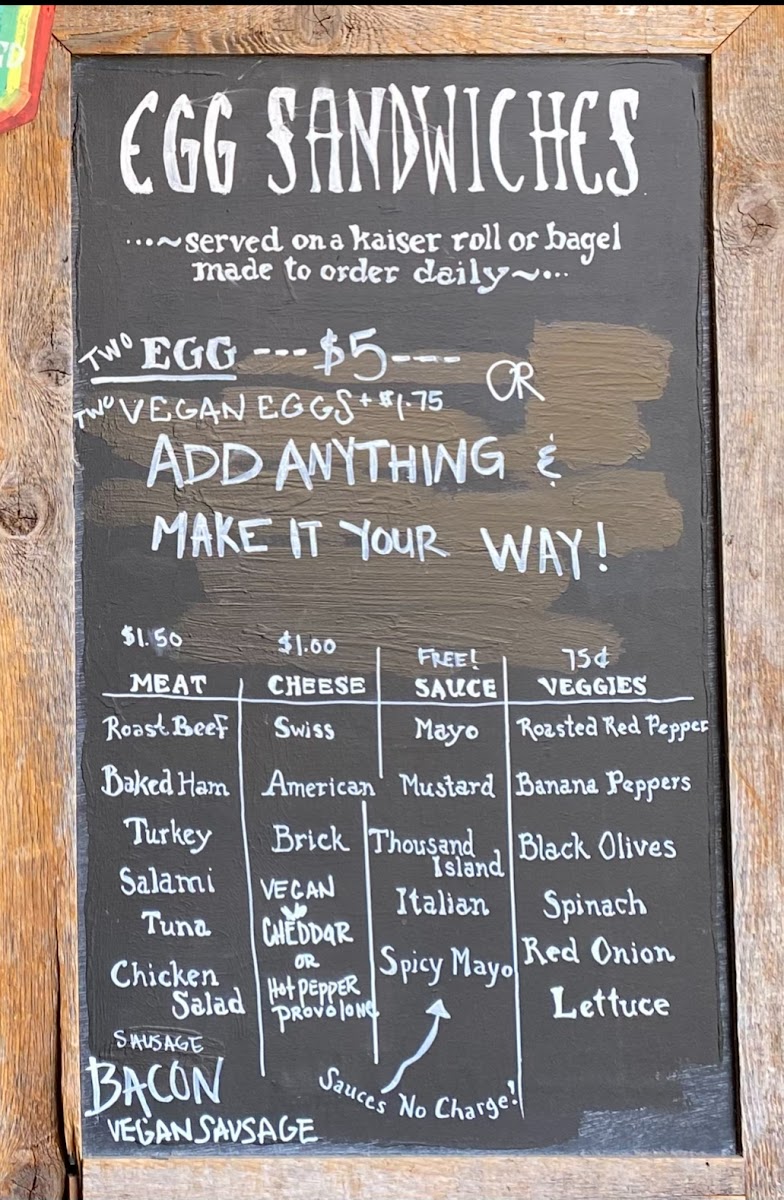 EGG SANDWICHES
...~served on a kaiser roll or bagel
made to order daily~...
TWO EGG ---$5---
OR
TWO VEGAN EGGS + $1.75
ADD ANYTHING &
MAKE IT YOUR WAY!
$1.50
MEAT
Roast Beef
Baked Ham
Turkey
Salami
Tuna
Chicken
Salad
SAUSAGE
BACON
VEGAN SAUSAGE
$1.00
CHEESE
Swiss
American
Brick
VEGAN
CHEDDAR
OR
Hot PEPPER
PROVOLONE
FREE!
SAUCE
Mayo
Mustard
Thousand
Island
Italian
Spicy Mayo
Sauces No Charge!
75¢
VEGGIES
Roasted Red Pepper
Banana Peppers
Black Olives
Spinach
Red Onion
Lettuce